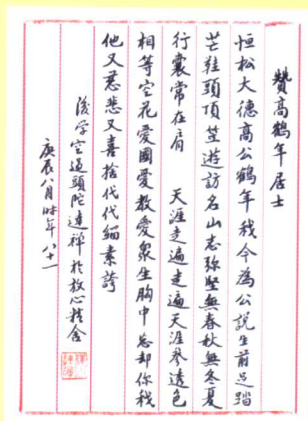 贊高鶴年居士
恒松大德高公鶴年我今為公說生前足踏
芒鞋頭頂笠遊訪名山志弥堅無春秋無冬夏
行囊常在肩 天涯走遍走遍天涯參透色
相等空花愛國愛教愛眾生胸中忘却你我
他又慈悲又喜捨代代緇素誇
後学空過頭陀達禅於放心精舍
庚辰八月时年八十一